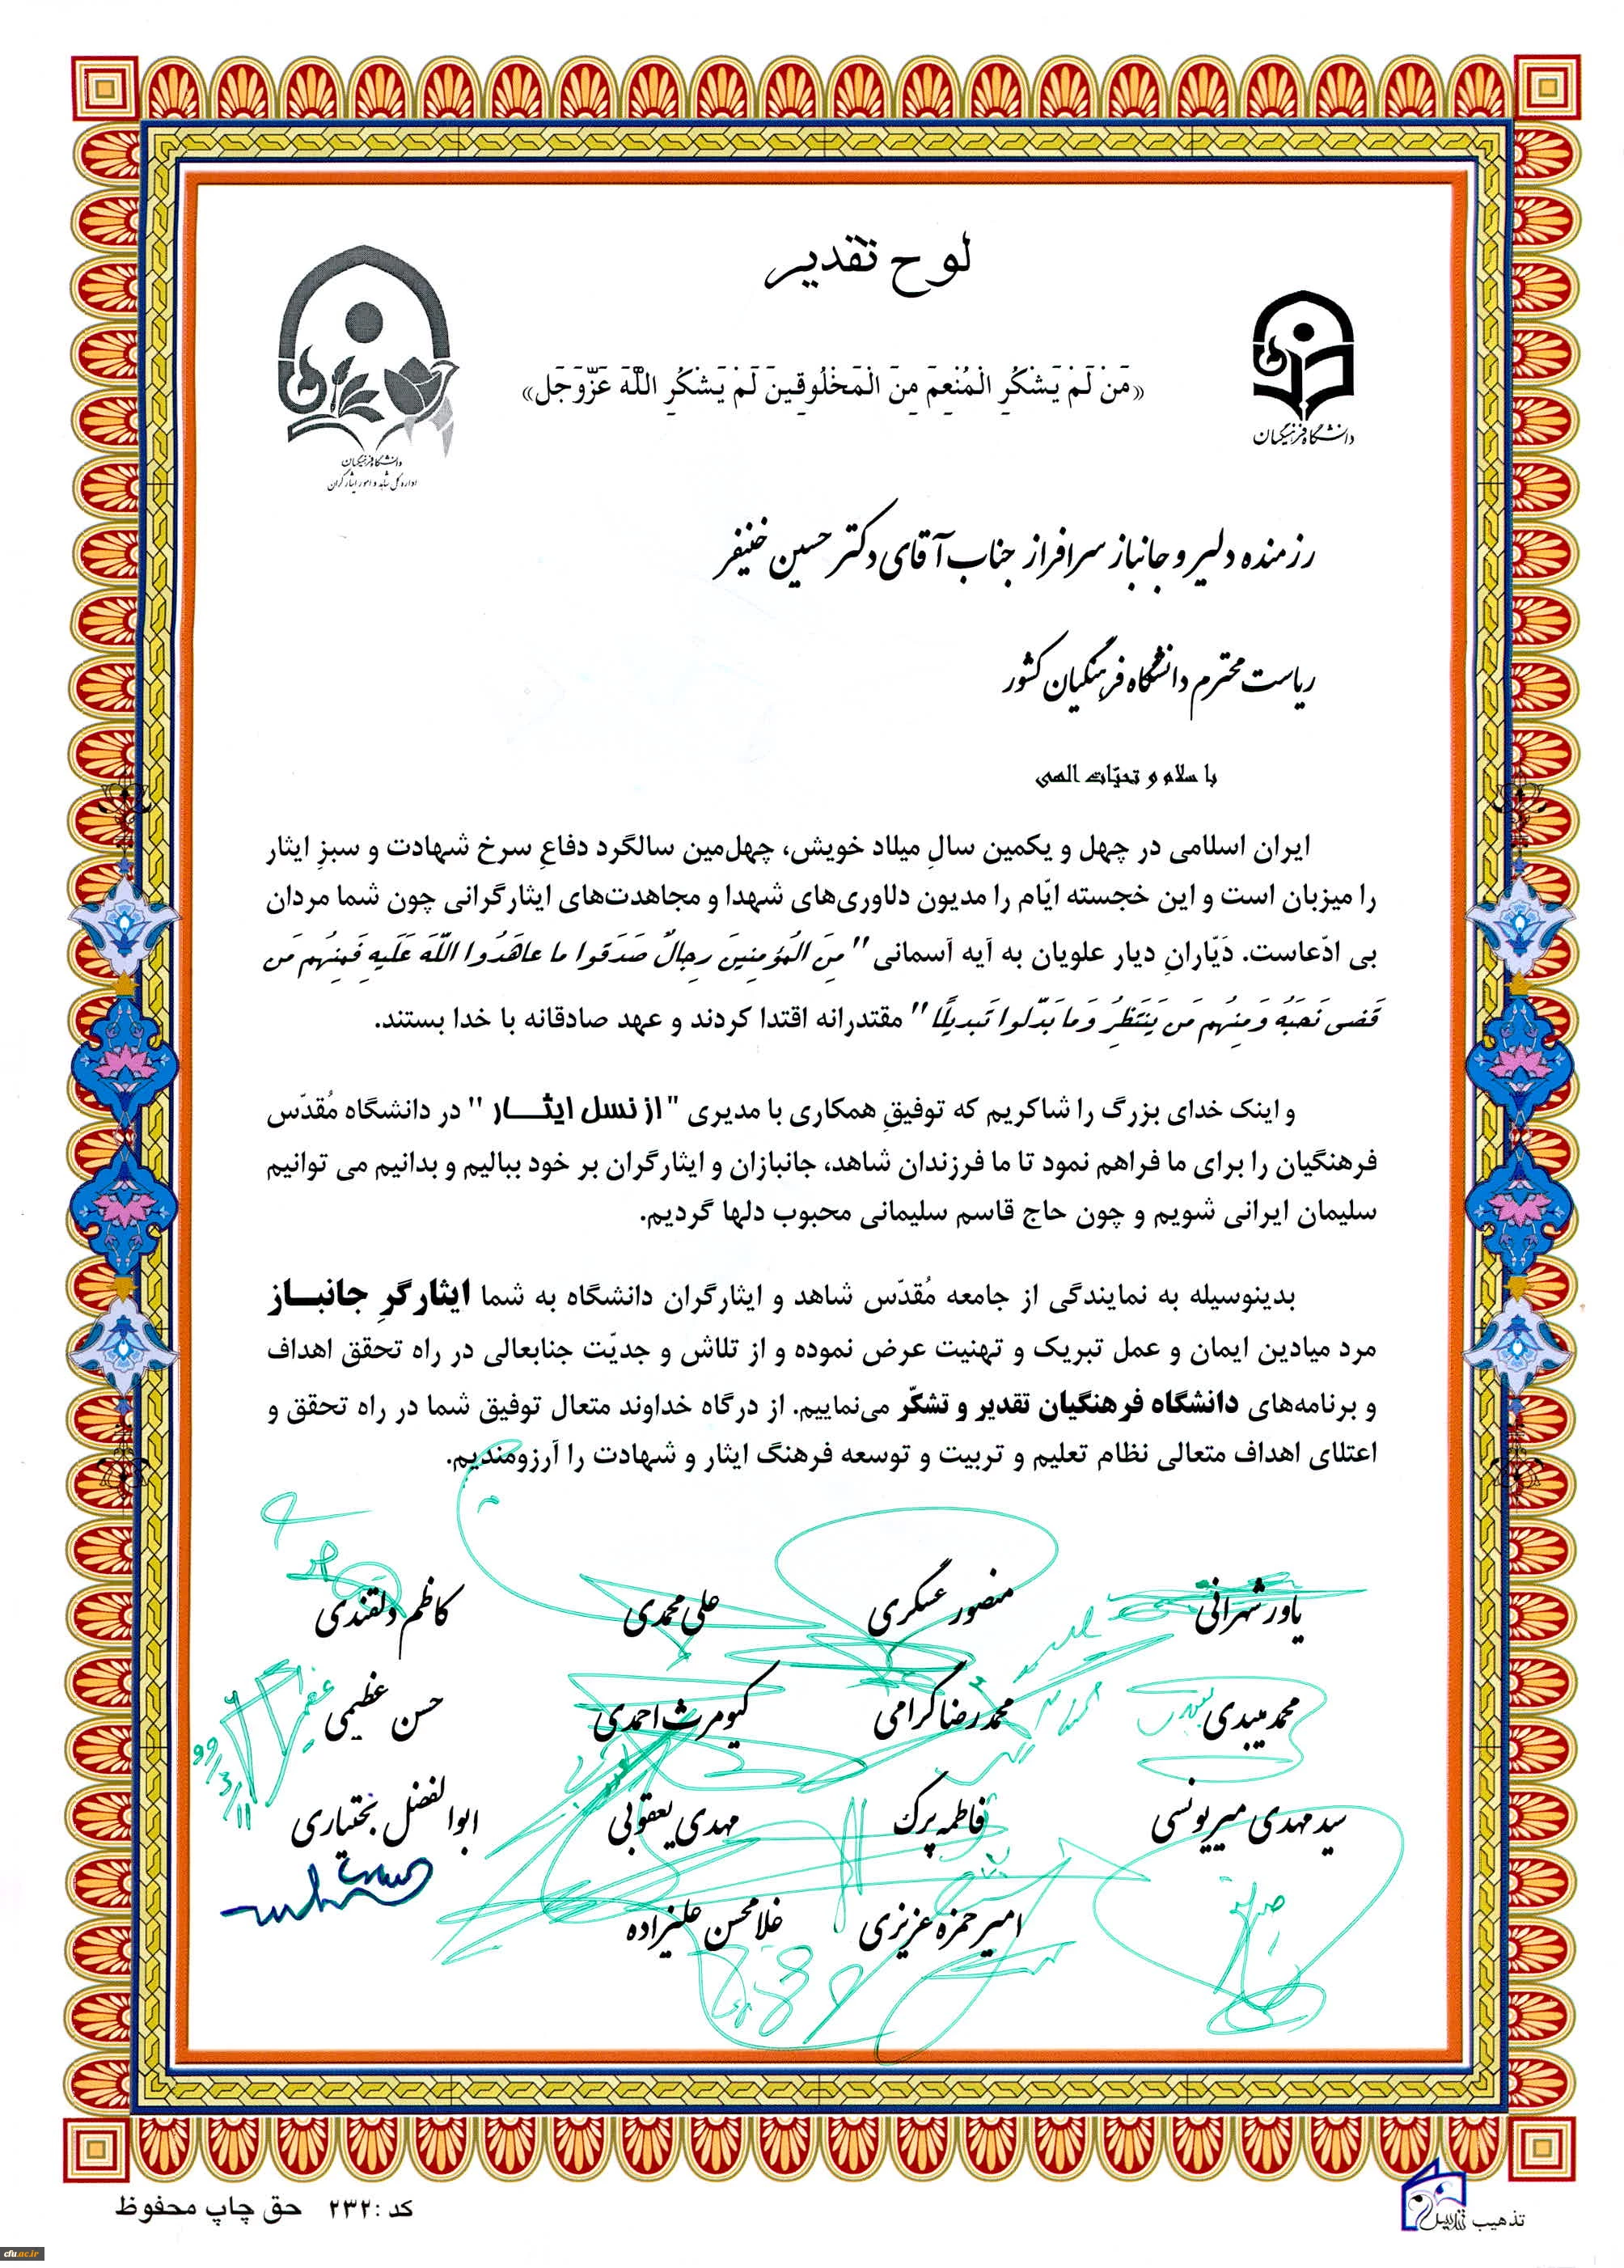 لوح تقدیر
«مَنْ لَمْ یَشْکُرِ الْمُنْعِمَ مِنَ الْمَخْلُوقِینَ لَمْ یَشْکُرِ اللَّهَ عَزَّوَجَل»
دانشگاه فرهنگیان
دانشگاه فرهنگیان
اداره کل شاهد و امور ایثارگران
رزمنده دلیر و جانباز سرافراز جناب آقای دکتر حسین خنیفر
ریاست محترم دانشگاه فرهنگیان کشور
با سلام و تحیّات الهی
ایران اسلامی در چهل و یکمین سالِ میلاد خویش، چهل‌مین سالگرد دفاعِ سرخ شهادت و سبزِ ایثار
را میزبان است و این خجسته ایّام را مدیون دلاوری‌های شهدا و مجاهدت‌های ایثارگرانی چون شما مردان
بی ادّعاست. دَیّارانِ دیار علویان به آیه آسمانی "مِنَ الْمُؤمِنینَ رِجالٌ صَدَقوا ما عاهَدُوا اللَّهَ عَلَیهِ فَمِنهُم مَن
قَضی نَحبَهُ وَ مِنهُم مَن یَنتَظِرُ وَ ما بَدَّلوا تَبدیلًا" مقتدرانه اقتدا کردند و عهد صادقانه با خدا بستند.
و اینک خدای بزرگ را شاکریم که توفیقِ همکاری با مدیری "از نسل ایثـــار" در دانشگاه مُقدّس
فرهنگیان را برای ما فراهم نمود تا ما فرزندان شاهد، جانبازان و ایثارگران بر خود ببالیم و بدانیم می توانیم
سلیمان ایرانی شویم و چون حاج قاسم سلیمانی محبوب دلها گردیم.
بدینوسیله به نمایندگی از جامعه مُقدّس شاهد و ایثارگران دانشگاه به شما ایثارگرِ جانبــاز
مرد میادین ایمان و عمل تبریک و تهنیت عرض نموده و از تلاش و جدیّت جنابعالی در راه تحقق اهداف
و برنامه‌های دانشگاه فرهنگیان تقدیر و تشکّر می‌نماییم. از درگاه خداوند متعال توفیق شما در راه تحقق و
اعتلای اهداف متعالی نظام تعلیم و تربیت و توسعه فرهنگ ایثار و شهادت را آرزومندیم.
یاور شهرانی منصور عسگری علی محمدی کاظم دلقندی
محمد میبدی محمدرضا گرامی کیومرث احمدی حسن عظیمی
سید مهدی میریونسی فاطمه پرک مهدی یعقوبی ابوالفضل بختیاری
امیرحمزه عزیزی غلامحسن علیزاده
۹۹/۳/۱۱
تذهیب تندیس
کد :۲۳۲ حق چاپ محفوظ
cfu.ac.ir